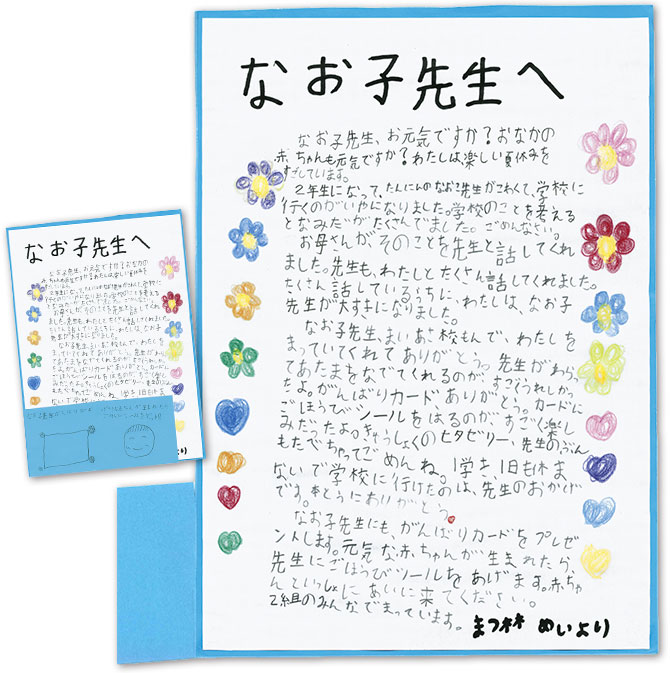 なお子先生へ
なお子先生、お元気ですか?おなかの
赤ちゃんも元気ですか?わたしは楽しい夏休みを
すごしています。
2年生になって、たんにんのなおこ先生がこわくて、学校に
行くのがいやになりました。学校のことを考える
となみだがたくさんでました。ごめんなさい。
お母さんが、そのことを先生と話してくれ
ました。先生も、わたしとたくさん話してくれました。
たくさん話しているうちに、わたしは、なお子
先生が大すきになりました。
なお子先生、まいあさ校もんで、わたしを
まっていてくれてありがとう。先生がわらっ
てあたまをなでてくれるのが、すごくうれしかっ
たよ。がんばりカード、ありがとう。カードに
ごほうびシールをはるのが、すごく楽し
みだったよ。きゅうしょくの七夕ゼリー、先生のぶん
もたべちゃってごめんね。1学き、1日も休ま
ないで学校に行けたのは、先生のおかげ
です。本とうにありがとう。
なお子先生にも、がんばりカードをプレゼ
ントします。元気な赤ちゃんが生まれたら、
先生にごほうびシールをあげます。赤ちゃ
んといっしょに あいに来てください。
2組のみんなでまっています。
まつ林 めいより
なお子先生へ